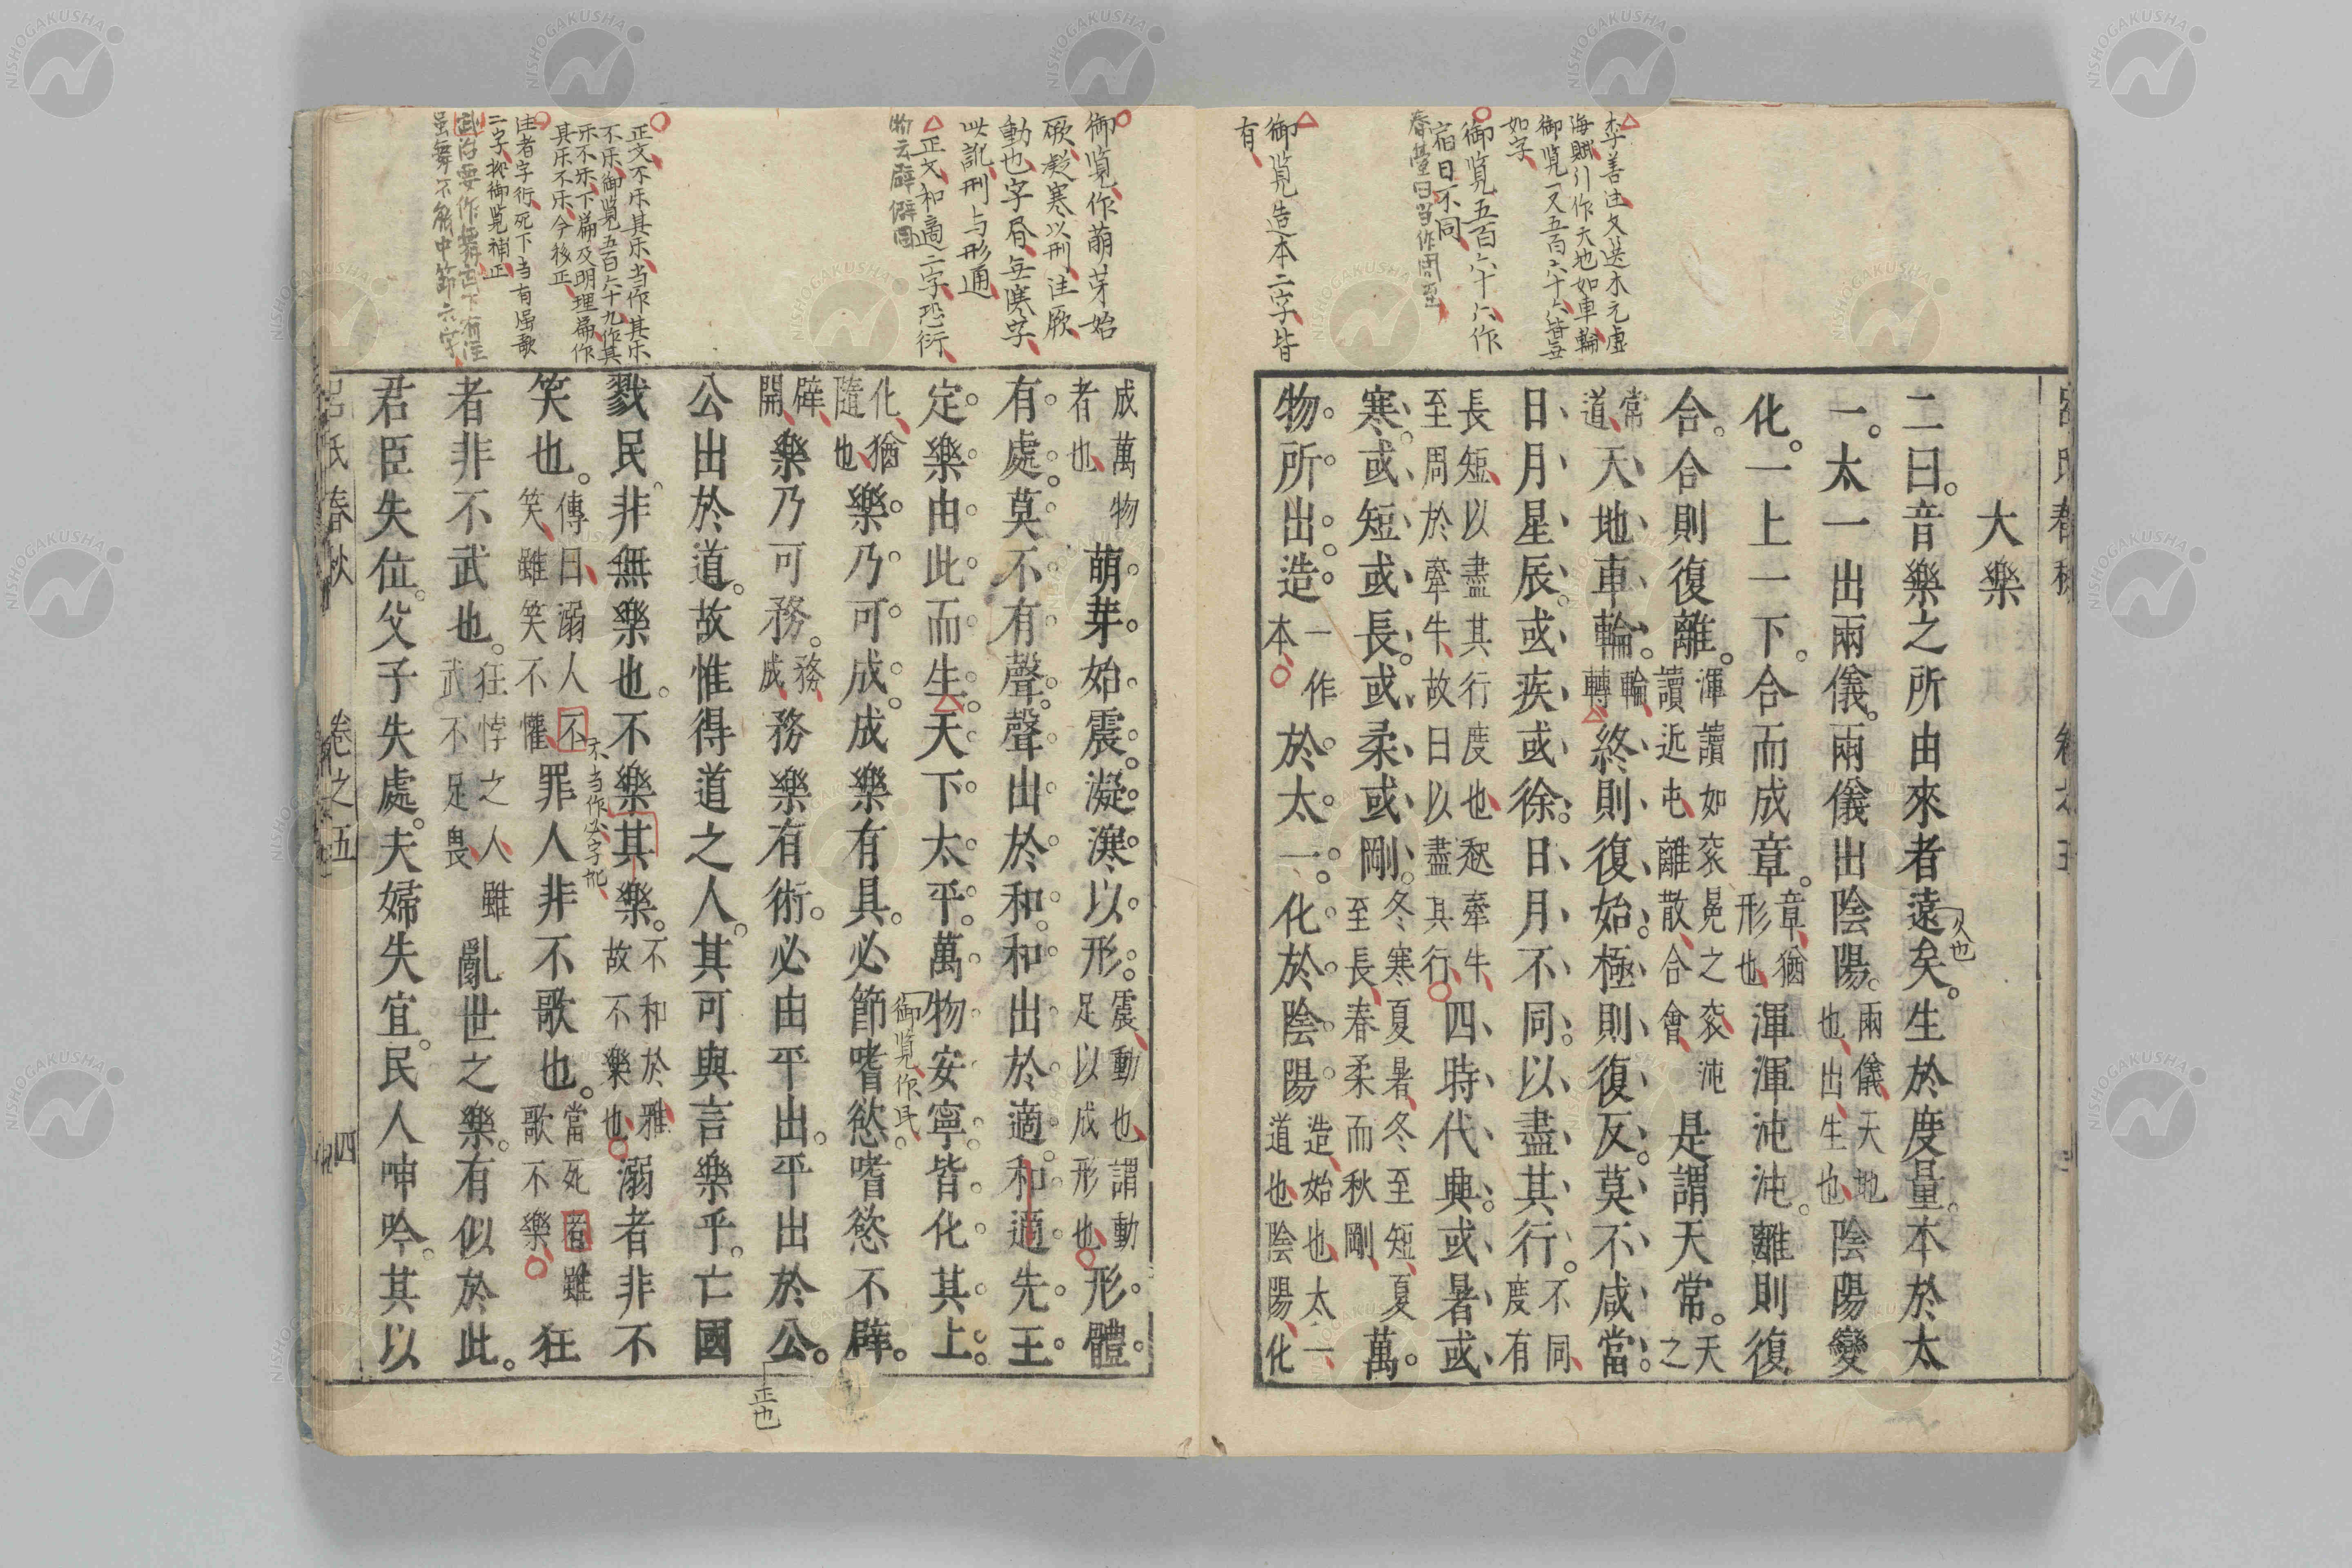 大樂
二曰音樂之所由來者遠矣。生於度量。本於太
久也
一。太一出兩儀。兩儀出陰陽。兩儀天地也出生也陰陽變
化。一上一下。合而成章。章猶形也渾渾沌沌。離則復
合。合則復離。渾讀如衮冕之衮沌讀近屯離散合會是謂天常。天之
常道天地車輪。輪轉終則復始。極則復反。莫不咸當。
日月星辰。或疾或徐。日月不同。以盡其行。不同度有
長短以盡其行度也愆牽牛至周於牽牛故曰以盡其行四時代興。或暑或
寒。或短或長。或柔或剛。冬寒夏暑冬至短夏至長春柔而秋剛萬
物所出。造一作本於太一。化於陰陽。造始也太一道也陰陽化
成萬物者也萌芽始震。凝㵄以形。震動也謂動足以成形也形體
有處。莫不有聲。聲出於和。和出於適。和適先王
定樂由此而生。天下太平。萬物安寧。皆化其上。
御覧作民
化猶隨也樂乃可成。成樂有具。必節嗜慾嗜慾不辟。
辟開樂乃可務。務成務樂有術。必由平出。平出於公。
正也
公出於道。故惟得道之人。其可與言樂乎。亡國
戮民。非無樂也。不樂其樂。不和於雅故不樂也溺者非不
不当作必字地
笑也。傳曰溺人不笑雖笑不懽罪人非不歌也。當死者雖歌不樂狂
者非不武也。狂悖之人雖武不足畏亂世之樂。有似於此。
君臣失位。父子失處。夫婦失宜。民人呻吟。其以
呂氏春秋 卷之五 四
李善注文选木元虚
海賦引作天地如車輪
御覧一又五百六十六皆无
如字
御覧五百六十六作
宿日不同
春臺曰当作周至
御覧造本二字皆
有
御覧作萌芽始
厥凝寒以刑注厥
動也字㫳無㵄字
此訛刑与形通
正文和適二字恐衍
物云辟僻同
正文不乐其乐当作其乐
不乐御覧五百六十九作其
乐不乐下篇及明理篇作
其乐不乐今移正
注者字衍死下当有强歌
二字拠御覧補正